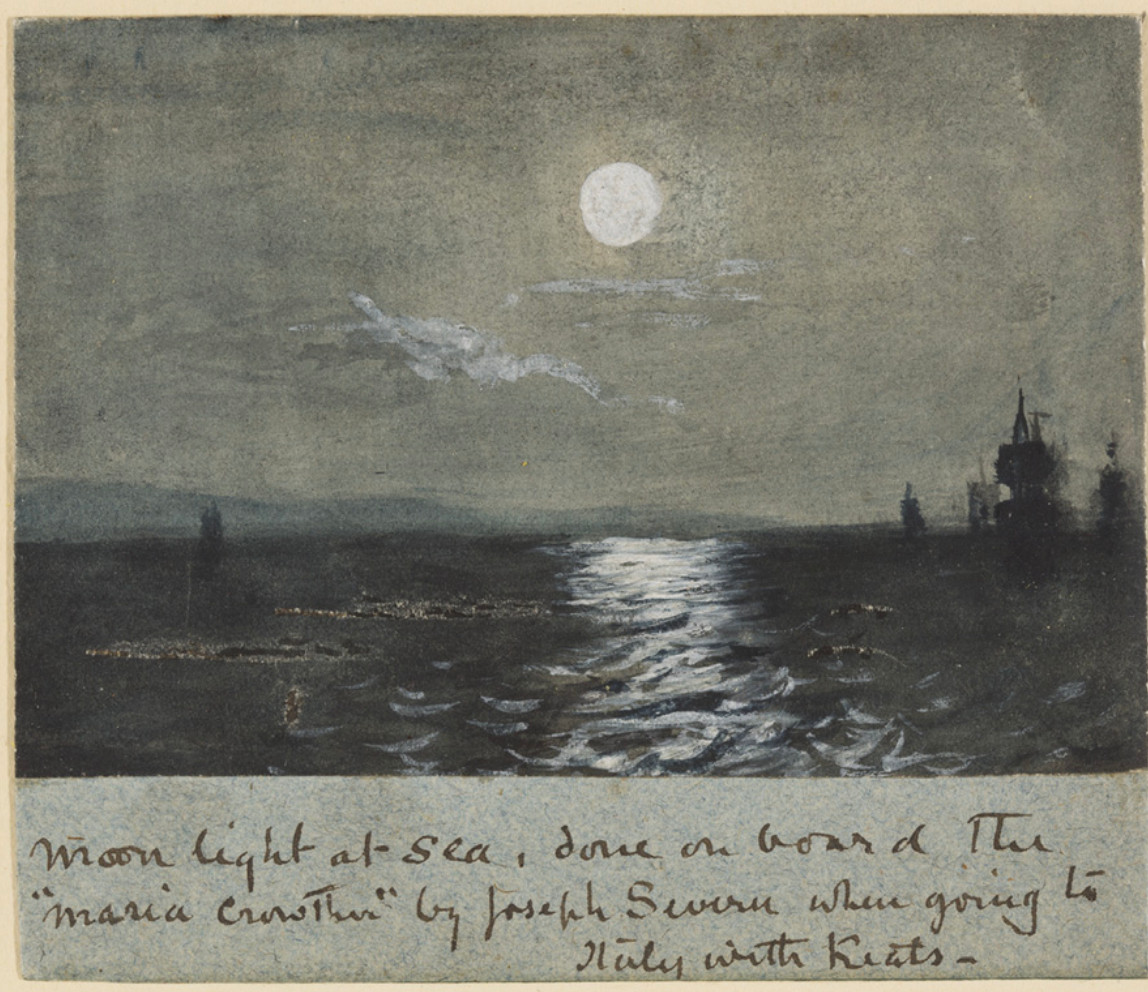 Moon light at Sea, done on board The
"Maria Crowther" by Joseph Severn when going to
Italy with Keats -